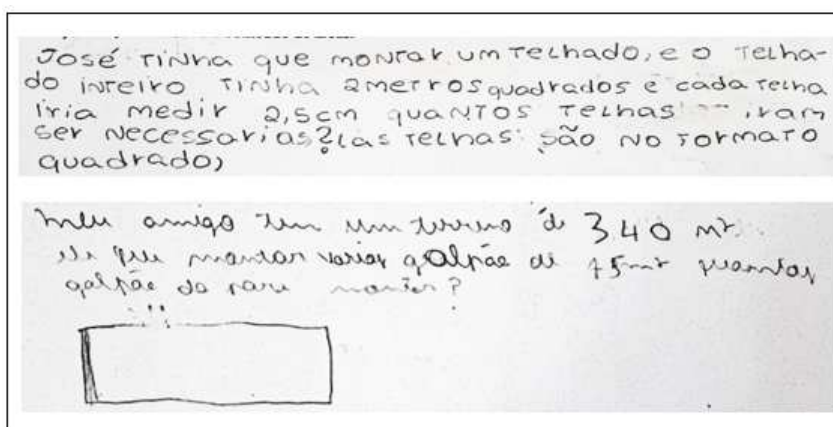 José tinha que montar um telhado, e o telha-
do inteiro tinha 2 metros quadrados e cada telha
iria medir 2,5cm quantos telhas iram
ser necessarias? (as telhas são no formato
quadrado)
meu amigo tem um terreno de 340 m²
ele que montar varios galpão de 75m² quantos
galpão da para montar?